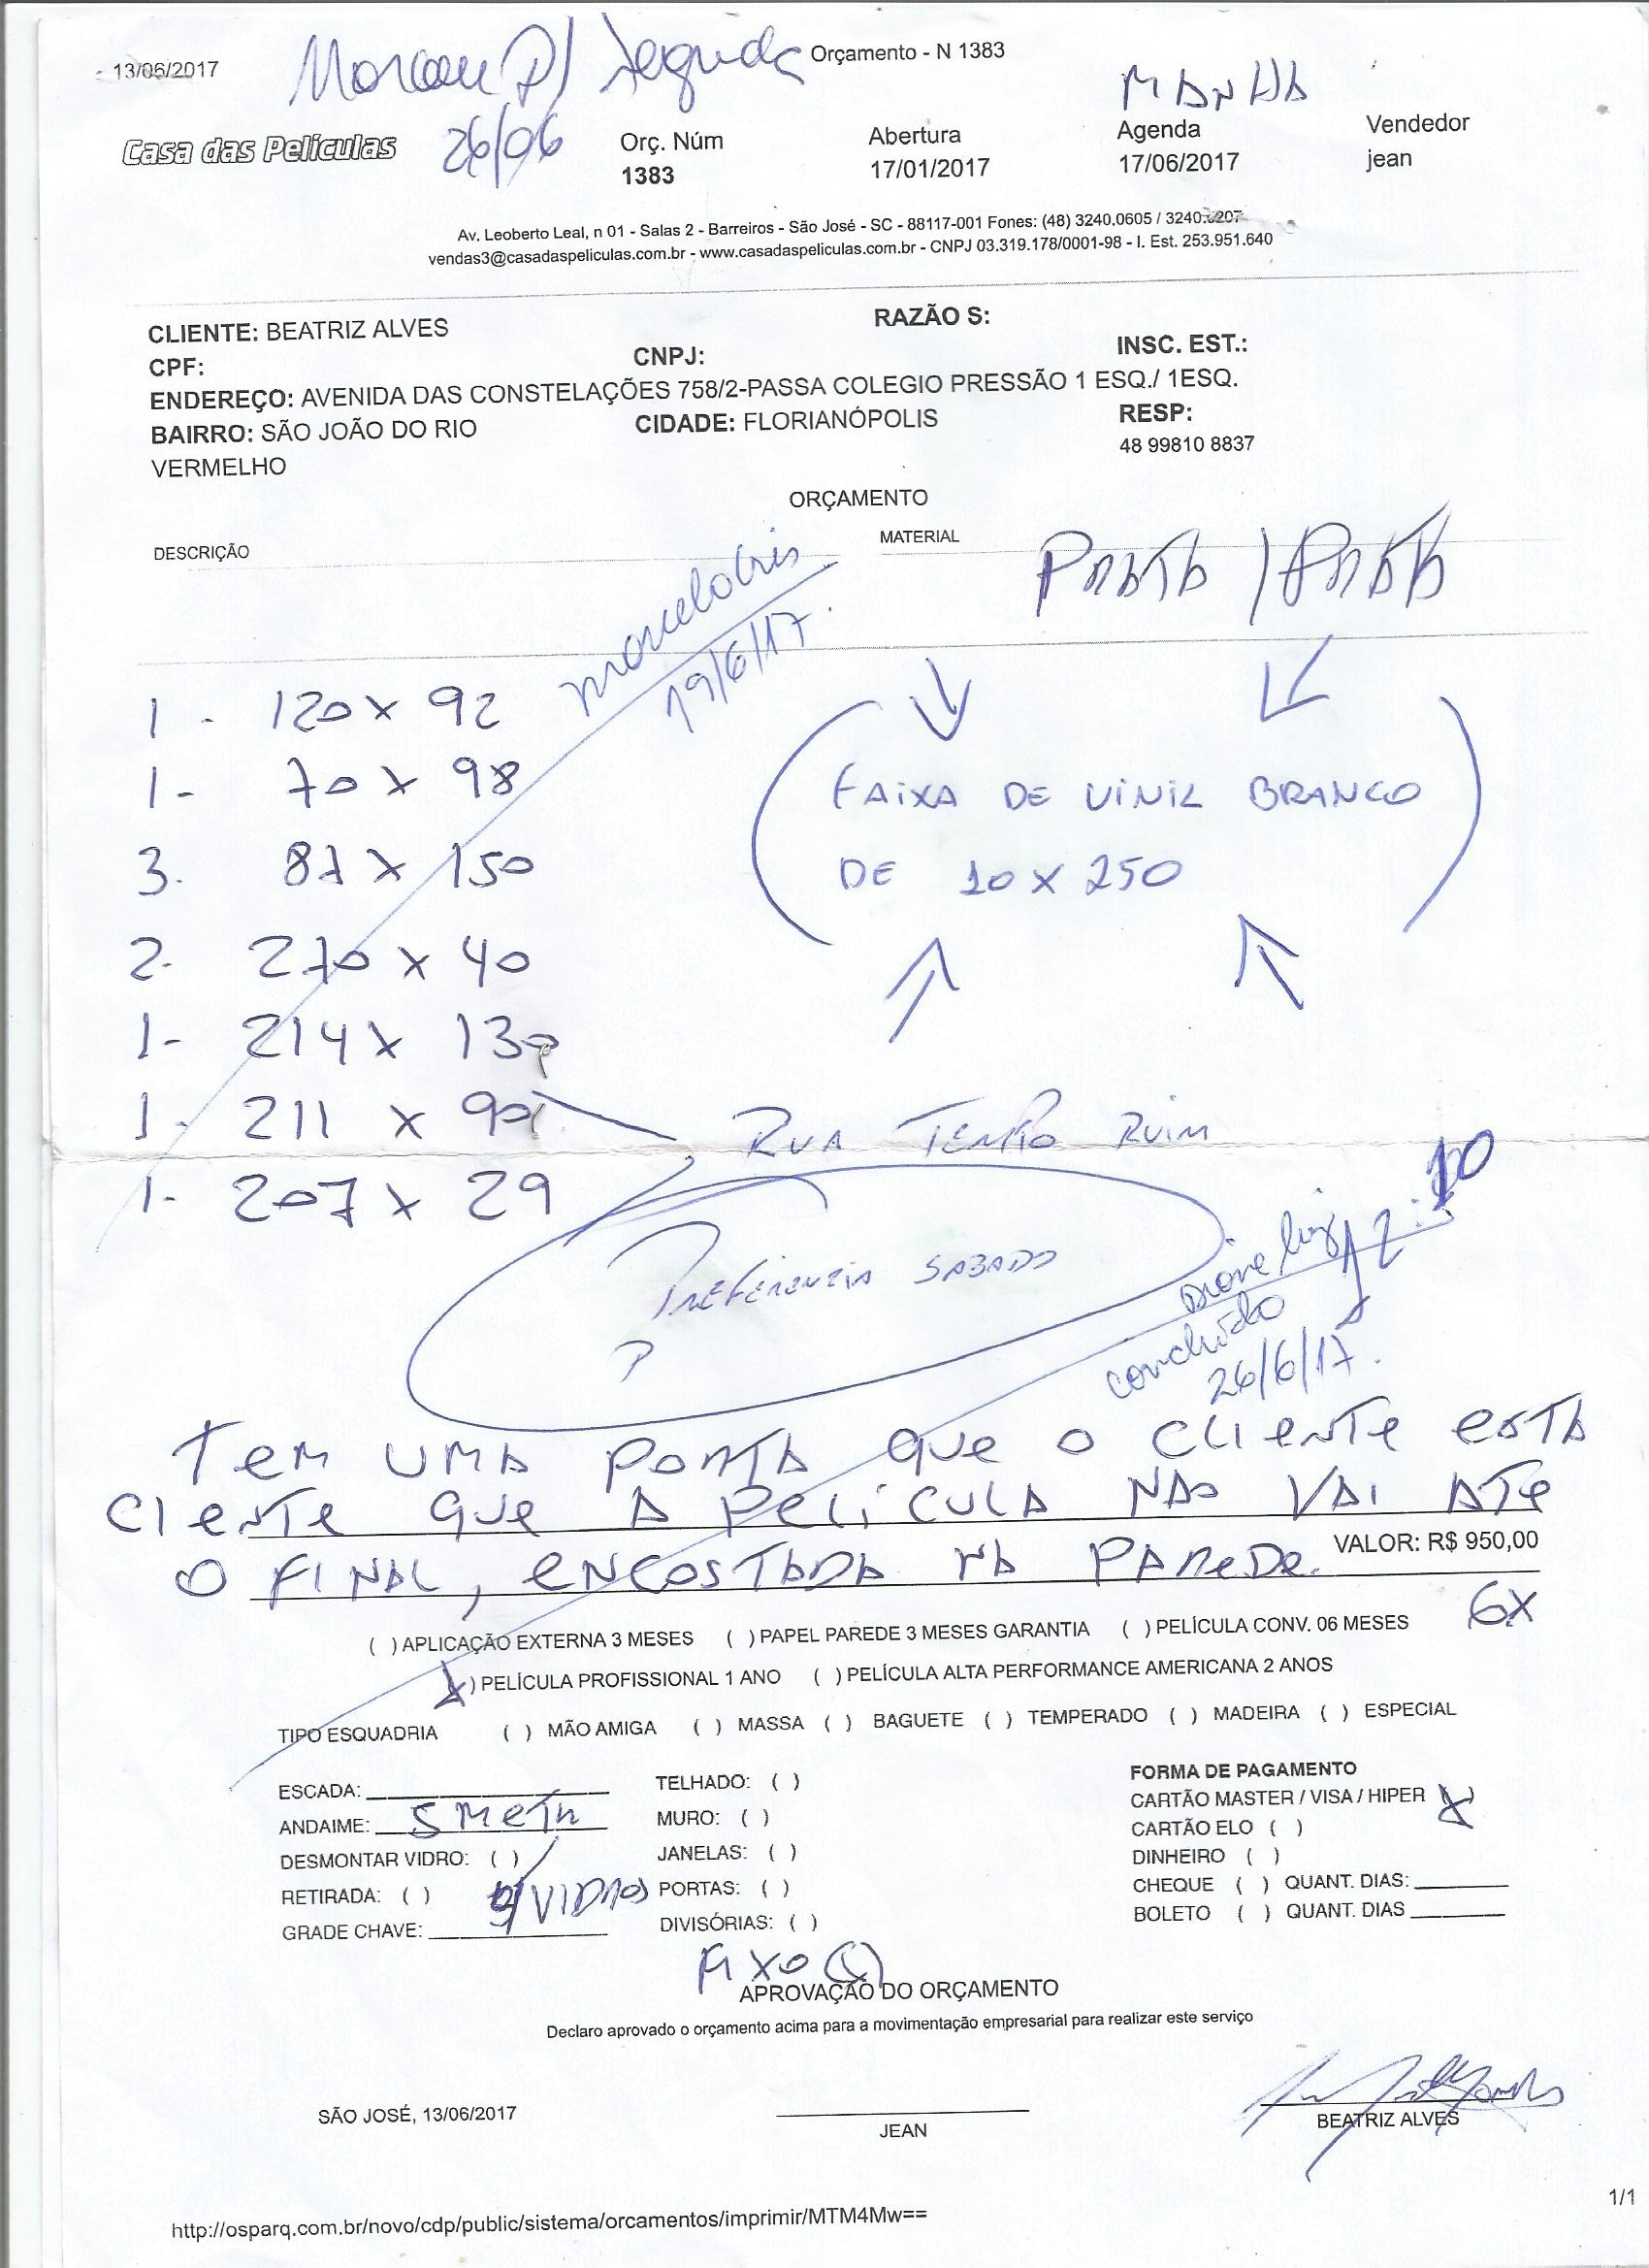 13/06/2017
Orçamento - N 1383
Marcau P/ Segunda
26/06
MANHA
Casa das Películas
Orç. Núm
1383
Abertura
17/01/2017
Agenda
17/06/2017
Vendedor
jean
Av. Leoberto Leal, n 01 - Salas 2 - Barreiros - São José - SC - 88117-001 Fones: (48) 3240.0605 / 3240.0207
vendas3@casadaspeliculas.com.br - www.casadaspeliculas.com.br - CNPJ 03.319.178/0001-98 - I. Est. 253.951.640
CLIENTE: BEATRIZ ALVES
RAZÃO S:
CPF:
CNPJ:
INSC. EST.:
ENDEREÇO: AVENIDA DAS CONSTELAÇÕES 758/2-PASSA COLEGIO PRESSÃO 1 ESQ./ 1ESQ.
BAIRRO: SÃO JOÃO DO RIO
VERMELHO
CIDADE: FLORIANÓPOLIS
RESP:
48 99810 8837
ORÇAMENTO
DESCRIÇÃO
MATERIAL
PRATA / PRATA
19/6/17.
1 - 120 x 92
1 - 70 x 98
3. 87 x 150
2- 270 x 40
1- 214 x 130
1- 211 x 90
1- 207 x 29
FAIXA DE VINIL BRANCO
DE 10 x 250
RUA TEMPO RUIM
PREFERENZIA SABADO
P
concluído
26/6/17.
TEM UMA PORTA QUE O CLIENTE ESTA
CIENTE QUE A PELÍCULA NAO VAI ATE
O FINAL, ENCOSTADA NA PAREDE.
VALOR: R$ 950,00
6X
( ) APLICAÇÃO EXTERNA 3 MESES ( ) PAPEL PAREDE 3 MESES GARANTIA ( ) PELÍCULA CONV. 06 MESES
(X) PELÍCULA PROFISSIONAL 1 ANO ( ) PELÍCULA ALTA PERFORMANCE AMERICANA 2 ANOS
TIPO ESQUADRIA ( ) MÃO AMIGA ( ) MASSA ( ) BAGUETE ( ) TEMPERADO ( ) MADEIRA ( ) ESPECIAL
ESCADA:
ANDAIME: 5 METR
DESMONTAR VIDRO: ( )
RETIRADA: ( )
VIDROS
GRADE CHAVE:
TELHADO: ( )
MURO: ( )
JANELAS: ( )
PORTAS: ( )
DIVISÓRIAS: ( )
FIXO (X)
FORMA DE PAGAMENTO
CARTÃO MASTER / VISA / HIPER (X)
CARTÃO ELO ( )
DINHEIRO ( )
CHEQUE ( ) QUANT. DIAS:
BOLETO ( ) QUANT. DIAS
APROVAÇÃO DO ORÇAMENTO
Declaro aprovado o orçamento acima para a movimentação empresarial para realizar este serviço
SÃO JOSÉ, 13/06/2017
JEAN
BEATRIZ ALVES
http://osparq.com.br/novo/cdp/public/sistema/orcamentos/imprimir/MTM4Mw==
1/1